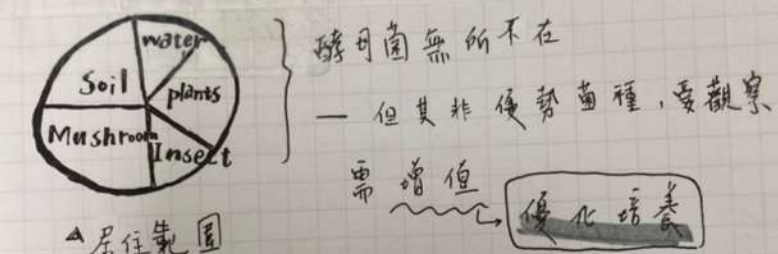 water
Soil
plants
Mushroom
Insect
酵母菌無所不在
— 但其非優勢菌種,要觀察
需增值
優化培養
△居住範圍